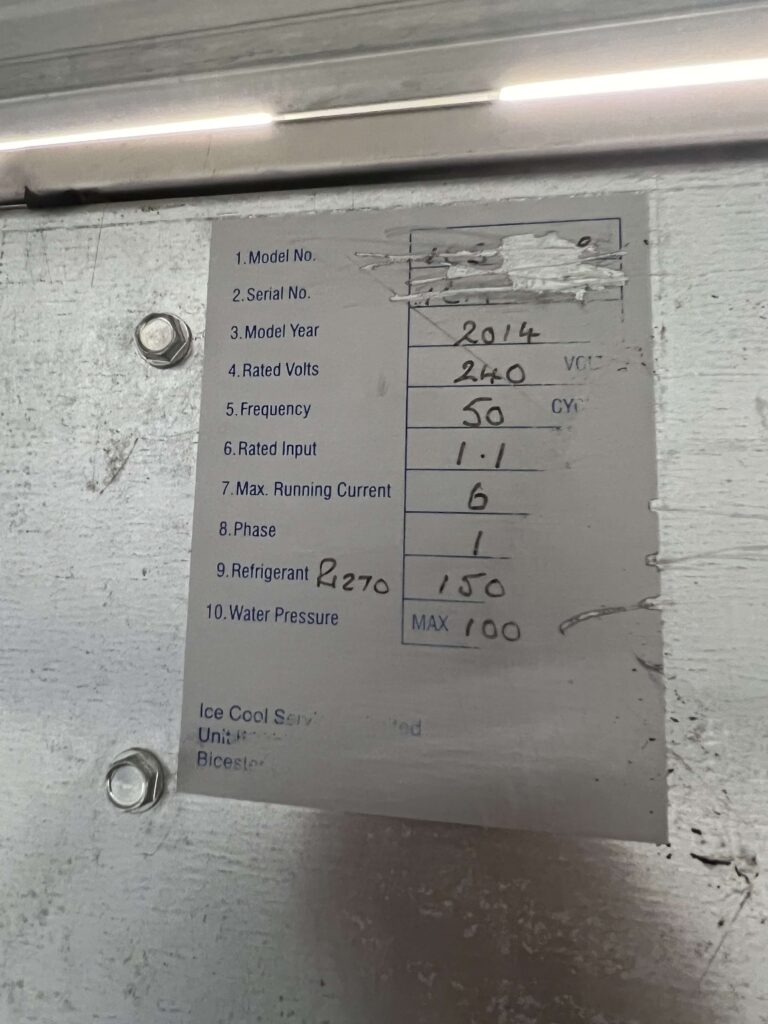 1. Model No.
2. Serial No.
3. Model Year 2014
4. Rated Volts 240
5. Frequency 50
6. Rated Input 1.1
7. Max. Running Current 6
8. Phase 1
9. Refrigerant R270 150
10. Water Pressure MAX 100
Ice Cool
Unit
Bicester